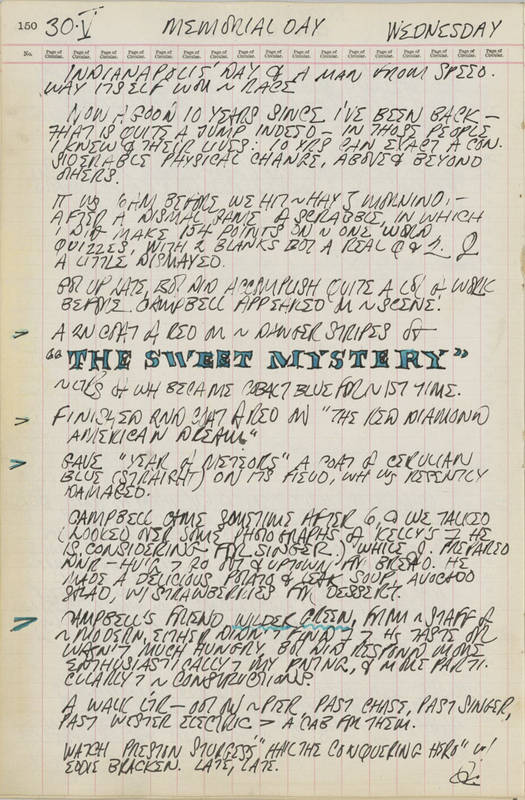 150 30·V MEMORIAL DAY WEDNESDAY
No. Page of Circular. Page of Circular. Page of Circular. Page of Circular. Page of Circular. Page of Circular. Page of Circular. Page of Circular. Page of Circular. Page of Circular. Page of Circular. Page of Circular. Page of Circular. Page of Circular. Page of Circular. Page of Circular.
INDIANAPOLIS' DAY & A MAN FROM SPEED-
WAY ITSELF WON ~ RACE
NOW, SOON 10 YEARS SINCE I'VE BEEN BACK —
THAT IS QUITE A JUMP INDEED — IN THOSE PEOPLE
I KNEW & THEIR LIVES: 10 YRS CAN EXACT A CON-
SIDERABLE PHYSICAL CHANGE, ABOVE & BEYOND
OTHERS.
IT WS 6AM BEFORE WE HIT ~ HAY MORNING, —
AFTER A DISMAL GAME of SCRABBLE, IN WHICH
I DID MAKE 154 POINTS ON ~ ONE WORD
QUIZZES, WITH 2 BLANKS BOT A REAL Q & Z.
A LITTLE DISMAYED.
GOT UP LATE, BUT DID ACCOMPLISH QUITE A LOT of WORK
BEFORE CAMPBELL APPEARED ON ~ SCENE:
A 2N COAT of RED ON ~ DANGER STRIPES of
"THE SWEET MYSTERY"
~ LTRS of WH BECAME COBALT BLUE FOR ~ 1ST TIME.
FINISHED 2ND COAT of RED ON "THE RED DIAMOND
AMERICAN DREAM"
GAVE "YEAR of METEORS" A COAT of CERULIAN
BLUE (STRAIGHT) ON ITS FIELD, WH WS RECENTLY
DAMAGED.
CAMPBELL CAME SOMETIME AFTER 6, & WE TALKED
(LOOKED OVER SOME PHOTOGRAPHS of KELLY'S HE
IS CONSIDERING FOR SINGER.) WHILE PREPARED
DNR — GO OUT & UPTOWN FOR BREAD. HE
MADE A DELICIOUS POTATO & LEAK SOUP, AVOCADO
SALAD, W/ STRAWBERRIES FOR DESSERT.
CAMPBELL'S FRIEND, WILDER GREEN, FROM ~ STAFF of
~ MODERN, EITHER DIDN'T FIND HS TASTE OR
WASN'T MUCH HUNGRY, BUT DID RESPOND MORE
ENTHUSIASTICALLY MY PNTING, & MORE PARTI-
CULARLY ~ CONSTRUCTIONS.
A WALK LTR — OUT ON ~ PIER, PAST CHASE, PAST SINGER,
PAST WESTER ELECTRIC > A CAB FOR THEM.
WATCH PRESTON STURGESS "HAIL THE CONQUERING HERO" W/
EDDIE BRACKEN. LATE, LATE.